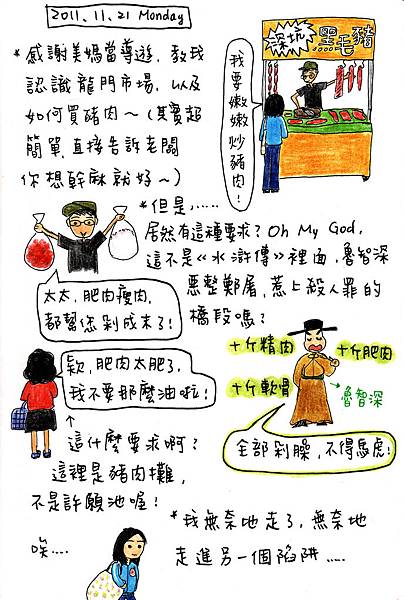 2011.11.21 Monday
*感謝美媽當導遊，教我
認識龍門市場，以及
如何買豬肉～(其實超
簡單，直接告訴老闆
你想幹麻就好～)
深坑
黑毛豬
我要嫩嫩炒豬肉!
*但是，……
居然有這種要求? Oh My God,
這不是《水滸傳》裡面，魯智深
惡整鄭屠，惹上殺人罪的
橋段嗎?
太太，肥肉瘦肉，
都幫您剁成末了!
欸，肥肉太肥了，
我不要那麼油啦!
十斤精肉
十斤肥肉
十斤軟骨
魯智深
全部剁臊，不得馬虎!
這什麼要求啊?
這裡是豬肉攤，
不是許願池喔!
*我無奈地走了，無奈地
走進另一個陷阱……
唉……